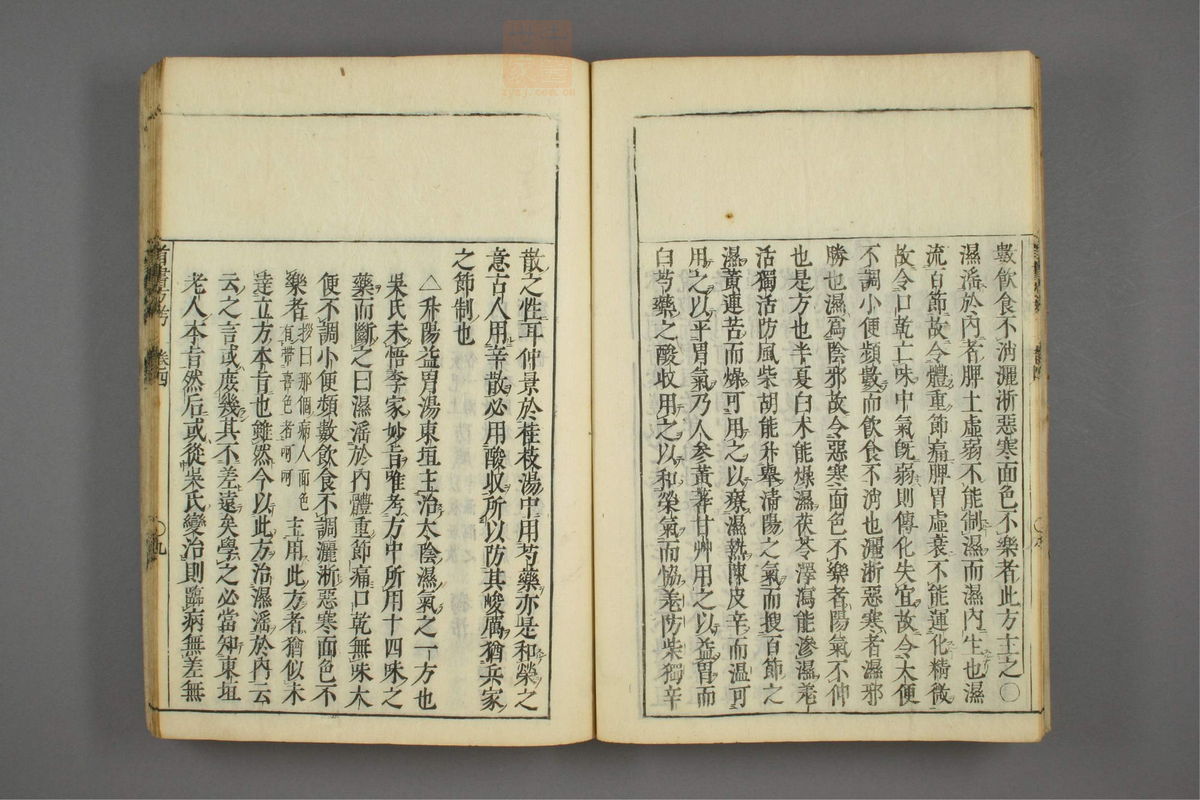 數飲食不消灑淅惡寒面色不樂者此方主之〇
濕淫於內者脾土虛弱不能制濕而濕內生也濕
流百節故令體重節痛脾胃虛衰不能運化精微
故令口乾亡味中氣旣弱則傳化失宜故令大便
不調小便頻數而飲食不消也灑淅惡寒者濕邪
勝也濕爲陰邪故令惡寒面色不樂者陽氣不伸
也是方也半夏白术能燥濕茯苓澤瀉能滲濕羌
活獨活防風柴胡能升舉清陽之氣而搜百節之
濕黃連苦而燥可用之以療濕熱陳皮辛而溫可
用之以平胃氣乃人參黃芪甘艸用之以益胃而
白芍藥之酸收用之以和榮氣而恊羌防柴獨辛
散之性耳仲景於桂枝湯中用芍藥亦是和榮之
意古人用辛散必用酸收所以防其峻厲猶兵家
之節制也
△升陽益胃湯東垣主治太陰濕氣之一方也
吳氏未悟李家妙旨唯考方中所用十四味之
藥而斷之曰濕淫於內體重節痛口乾無味大
便不調小便頻數飲食不調灑淅惡寒面色不
樂者拶曰那個病人面色有帶喜色者呵呵主用此方者猶似未
達立方本旨也雖然今以此方治濕淫於內云
云之言或庶幾其不差遠矣學之必當知東垣
老人本旨然后或從吳氏變治則臨病無差無
首書方考
卷四
〇九